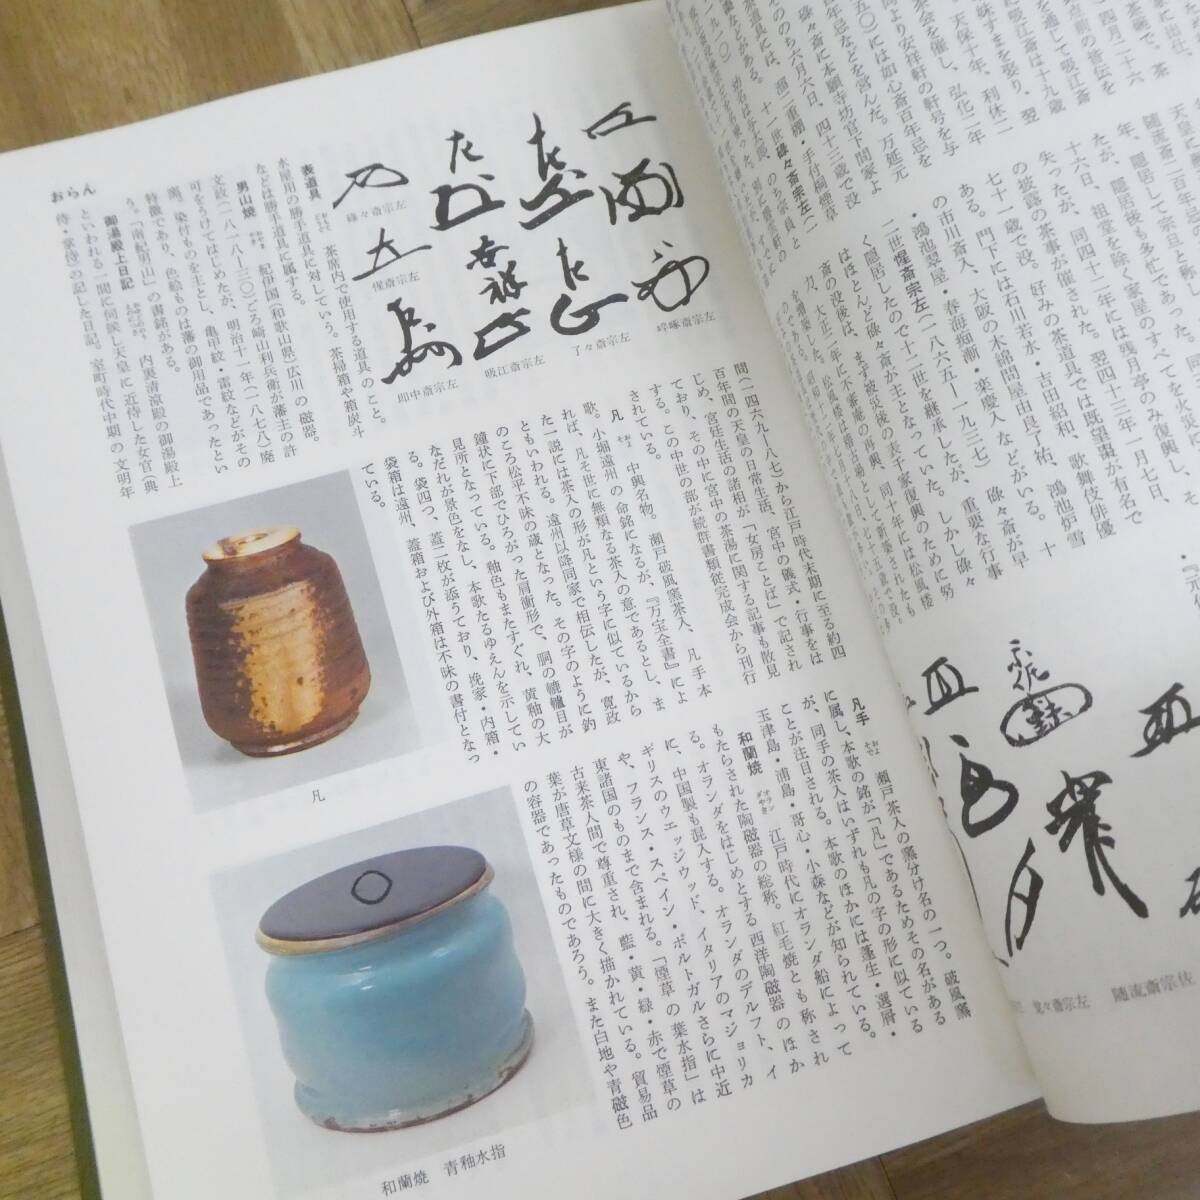 四月二十六
点前の皆伝を
を通して吸江斎
に吸江斎は十九歳
妹すまを娶り、翌
天保十年、利休二百
茶会を催し、弘化二年
時より安祥軒の軒号を与
五〇)には如心斎百年忌を
年忌などを営んだ。万延元
碌々斎に本願寺坊官下間家よ
ののち六月六日、四十三歳で没
道具には、溜二重棚・手付桐煙草
などがある。
十一世碌々斎宗左(一
年、隠居して宗旦と称
たが、隠居後も多忙であった。同
十六日、祖堂を除く家屋のすべてを火災で
失ったが、同四十二年には残月亭のみ復興し、
の披露の茶事が催された。翌四十三年一月七日、
七十一歳で没。好みの茶道具では既望棗が有名で
ある。門下には石川若水・吉田紹和、歌舞伎俳優
の市川斎入、大阪の木綿問屋由良了祐、鴻池炉雪
・鴻池翠屋・春海痴漸・楽慶入などがいる。十
二世惺斎宗左(一八六五―一九三七) 碌々斎が早
く隠居したので十二世を継承したが、重要な行事
はほとんど碌々斎が主となっていた。しかし碌々
斎の没後は、まず被災後の表千家復興のために努
力、大正二年に不審庵の再興、同十年には松風楼
を増築した。
覚々斎宗左
随流斎宗佐
おらん
碌々斎宗左
惺斎宗左
即中斎宗左
吸江斎宗左
了々斎宗左
啐啄斎宗左
表道具 茶席内で使用する道具のこと。
水屋用の勝手道具に対していう。茶掃箱や箱炭斗
などは勝手道具に属する。
男山焼 紀伊国(和歌山県)広川の磁器。
文政(一八一八―三〇)ごろ崎山利兵衛が藩主の許
可をうけてはじめたが、明治十一年(一八七八)廃
窯。染付ものを主とし、亀甲紋・雷紋などがその
特徴であり、色絵ものは藩の御用品であったとい
う。「南紀男山」の書銘がある。
御湯殿上日記 内裏清涼殿の御湯殿上
といわれる一間に伺候し天皇に近侍した女官(典
侍・掌侍)の記した日記。室町時代中期の文明年
間(一四六九―八七)から江戸時代末期に至る約四
百年間の天皇の日常生活、宮中の儀式・行事をは
じめ、宮廷生活の諸相が「女房ことば」で記され
ており、その中に宮中の茶湯に関する記事も散見
する。この中世の部が続群書類従完成会から刊行
されている。
凡 おおよそ 中興名物。瀬戸破風窯茶入、凡手本
歌。小堀遠州の命銘になるが、『万宝全書』によ
れば、凡そ世に無類なる茶入の意であるとし、ま
た一説には茶入の形が凡という字に似ているから
ともいわれる。遠州以降同家で相伝したが、寛政
のころ松平不昧の蔵となった。その字のように釣
鐘状に下部でひろがった肩衝形で、胴の轆轤目が
見所となっている。釉色もまたすぐれ、黄釉の大
なだれが景色をなし、本歌たるゆえんを示してい
る。袋四つ、蓋二枚が添うており、挽家・内箱・
袋箱は遠州、蓋箱および外箱は不昧の書付となっ
ている。
凡
凡手 瀬戸茶入の窯分け名の一つ。破風窯
に属し、本歌の銘が「凡」であるためその名がある
が、同手の茶入はいずれも凡の字の形に似ている
ことが注目される。本歌のほかには蓬生・選屑・
玉津島・浦島・哥心・小森などが知られている。
和蘭焼 オランダやき 江戸時代にオランダ船によって
もたらされた陶磁器の総称。紅毛焼とも称され
る。オランダをはじめとする西洋陶磁器のほか
に、中国製も混入する。オランダのデルフト、イ
ギリスのウエッジウッド、イタリアのマジョリカ
や、フランス・スペイン・ポルトガルさらに中近
東諸国のものまで含まれる。「煙草の葉水指」は
古来茶人間で尊重され、藍・黄・緑・赤で煙草の
葉が唐草文様の間に大きく描かれている。貿易品
の容器であったものであろう。また白地や青磁色
和蘭焼 青釉水指